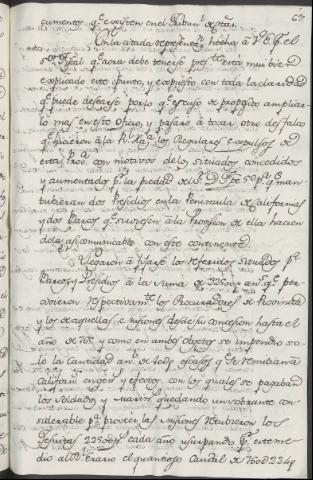 63
cumentos qe existen en el Tribunl de
En la citada representn hecha a V. E. el
Sor Fiscal qe aora debe tenerse por está mui bien
explicado este punto, y expuesto con toda la claridad
qe puede desearse por lo qe escuso de proposito ampliar
lo mas en este oficio, y pasaré á tocar otro desfalco
qe hicieron á la Rl Hazda los Regulares expulsos de
esta Prova con motivo de los situados concedidos
y aumentados pr la piedad del Sor D. Felipe 5o pa qe man
tubieran dos Presidios en la Peninsula de Californias
y dos Barcos qe sirviesen á la Provision de ella hacien
dola asi comunicable con este continente
Llegaron á fijarse los referidos situados pa
Barcos y Presidios á la suma de 32500 ps anus qe per
civieron respectivamte los Procuradores de Provincia
y los de aquellas Misiones desde su concesion hasta el
año de 767 y como en ambos objetos se impendio so
lo la cantidad anl de 10000 ps escasos y qe se remitian á
Californs en generos y efectos con los quales se pagaban
los Soldados, y Marins quedando un sobrante con
siderable pa proveer las Misions reusbieron los
Jesuitas 22500 ps cada año usurpando pr este me
dio al Rl Erario el quantioso Caudal de 760U224 ps